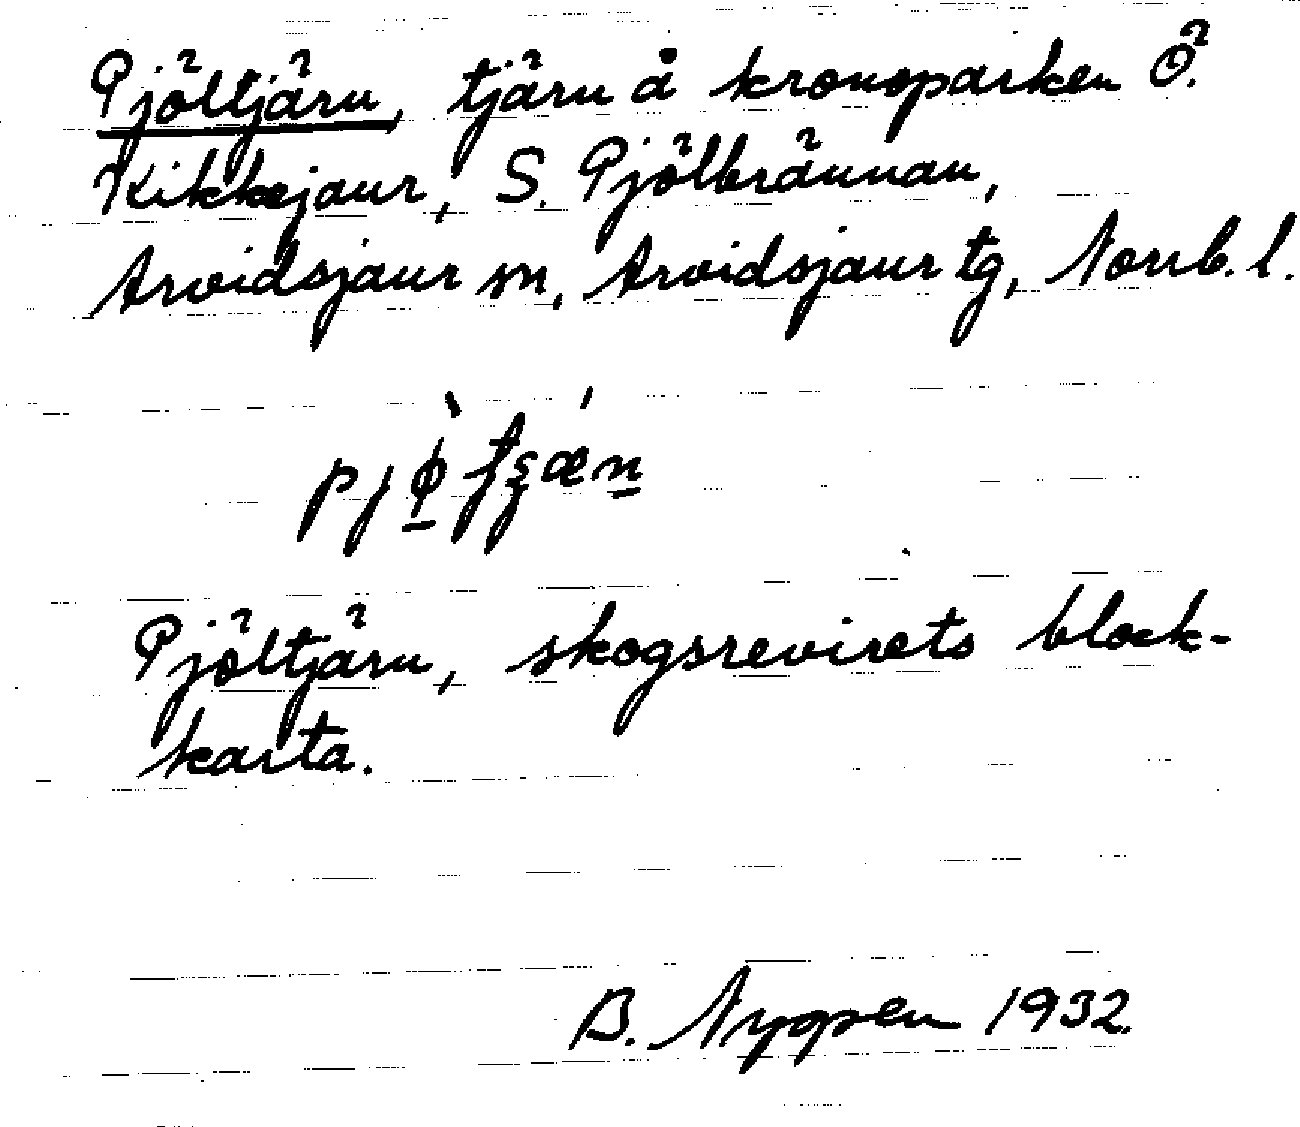 Pjöltjärn, tjärn å kronoparken Ö.
Kikkejaur, S. Pjölbrännan,
Arvidsjaur sn, Arvidsjaur tg, Norrb. l.
Pjöltjärn, skogsrevirets block-
karta.
B. Nygren 1932.